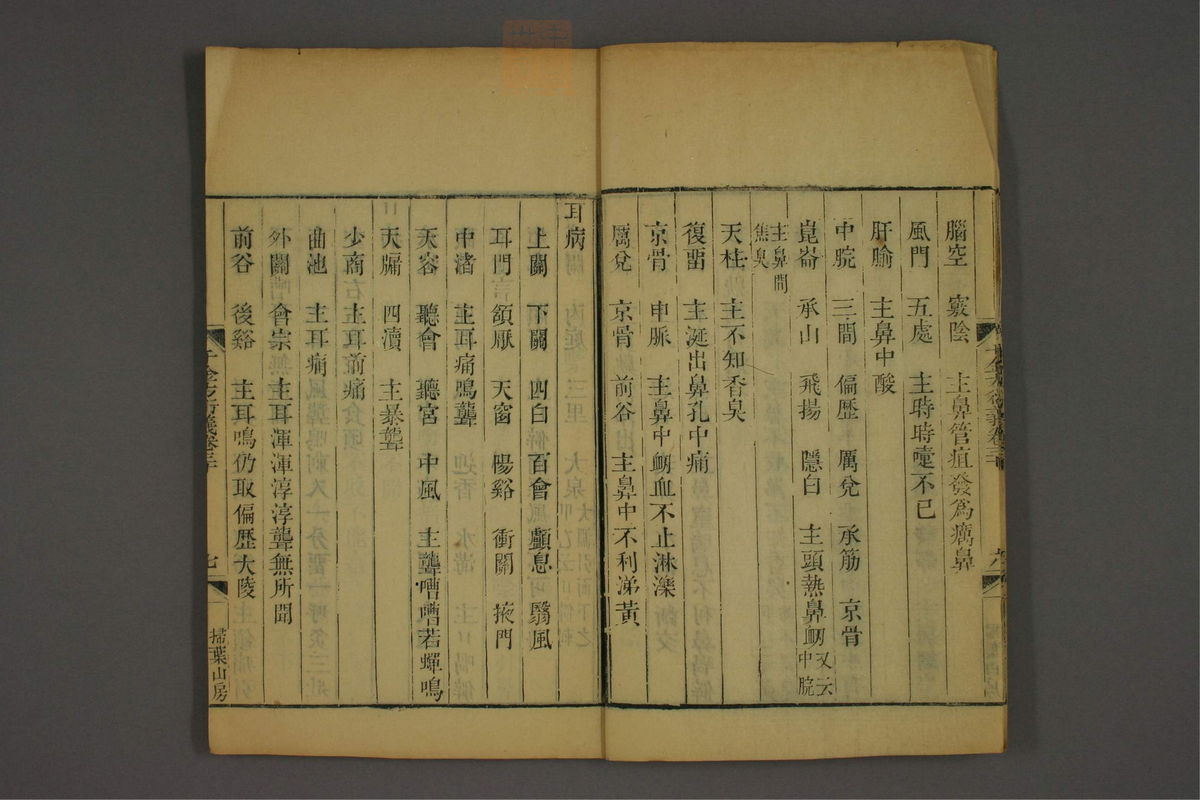 腦空　竅陰　主鼻管疽發爲癘鼻
風門　五處　主時時嚏不已
肝腧　主鼻中酸
中脘　三間　偏歷　厲兌　承筋　京骨
崑崙　承山　飛揚　隱白　主頭熱鼻衄又云中脘
主鼻間焦臭
天柱　主不知香臭
復畱　主涎出鼻孔中痛
京骨　申脈　主鼻中衄血不止淋濼
厲兌　京骨　前谷　主鼻中不利涕黃
千金方衍義卷三十　六
耳病
上關　下關　四白　百會　顱息　翳風
耳門　頷厭　天窗　陽谿　衝關　掖門
中渚　主耳痛鳴聾
天容　聽會　聽宮　中風　主聾嘈嘈若蟬鳴
天牖　四瀆　主暴聾
少商　主耳前痛
曲池　主耳痛
外關　會宗　主耳渾渾淳淳聾無所聞
前谷　後谿　主耳鳴仍取偏歷大陵
千金方衍義卷三十　七　掃葉山房